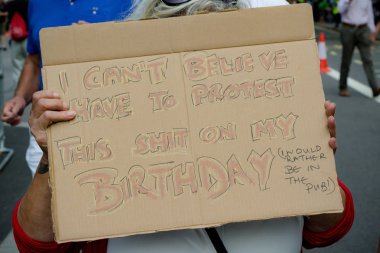 I CAN'T BELIEVE
I HAVE TO PROTEST
THIS SHIT ON MY
BIRTHDAY
(I WOULD
RATHER
BE IN
THE
PUB!)